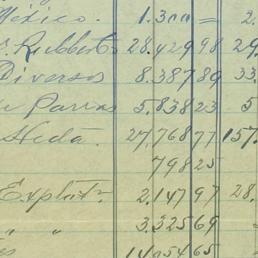 México. 1.300 = 2.
. Rubbert 28.429 98 29.
Diversos 8.387 89 33.
Parras 5.838 23 5
Heda. 27.768 77 157.
798 25
Explot 2.147 97 28.
" " 3.325 69
14.054 65